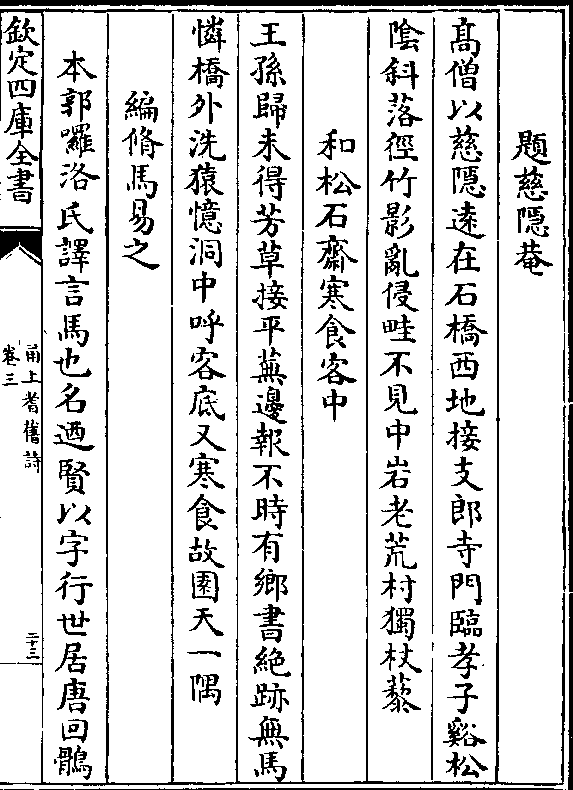 題慈隠菴
髙僧以慈隠逺在石橋西地接支郎寺門臨孝子谿松
隂斜落徑竹影亂侵畦不見中岩老荒村獨杖藜
和松石齋寒食客中
王孫歸未得芳草接平蕪邊報不時有鄉書絶跡無馬
憐橋外洗猿憶洞中呼客底又寒食故園天一隅
編脩馬易之
本郭囉洛氏譯言馬也名迺賢以字行世居唐回鶻
欽定四庫全書
甬上耆舊詩
卷三
二十三